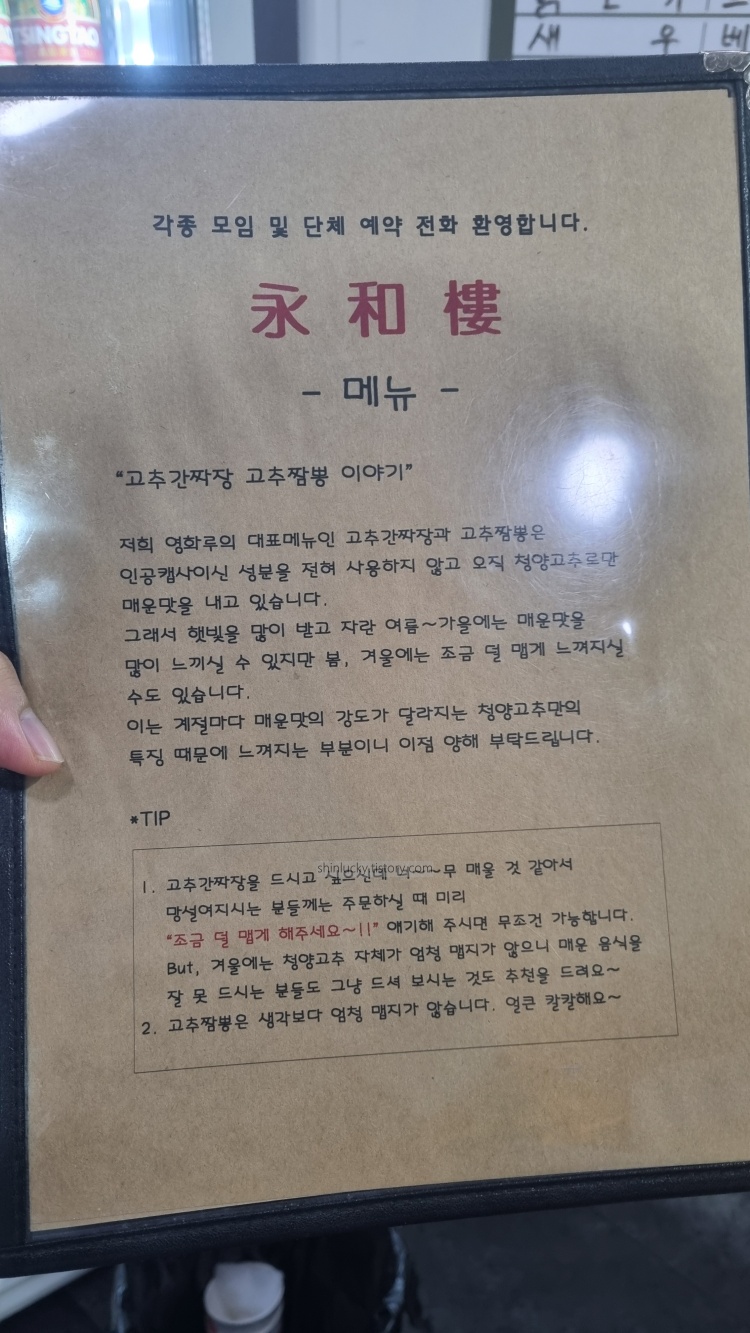 TSINGTAO
새 우 베
각종 모임 및 단체 예약 전화 환영합니다.
永和樓
- 메뉴 -
“고추간짜장 고추짬뽕 이야기”
저희 영화루의 대표메뉴인 고추간짜장과 고추짬뽕은
인공캡사이신 성분을 전혀 사용하지 않고 오직 청양고추로만
매운맛을 내고 있습니다.
그래서 햇빛을 많이 받고 자란 여름~가을에는 매운맛을
많이 느끼실 수 있지만 봄, 겨울에는 조금 덜 맵게 느껴지실
수도 있습니다.
이는 계절마다 매운맛의 강도가 달라지는 청양고추만의
특징 때문에 느껴지는 부분이니 이점 양해 부탁드립니다.
*TIP
1. 고추간짜장을 드시고 싶으신데 너~~~무 매울 것 같아서
shinlucky.tistory.com
망설여지시는 분들께는 주문하실 때 미리
“조금 덜 맵게 해주세요~!!” 얘기해 주시면 무조건 가능합니다.
But, 겨울에는 청양고추 자체가 엄청 맵지가 않으니 매운 음식을
잘 못 드시는 분들도 그냥 드셔 보시는 것도 추천을 드려요~
2. 고추짬뽕은 생각보다 엄청 맵지가 않습니다. 얼큰 칼칼해요~